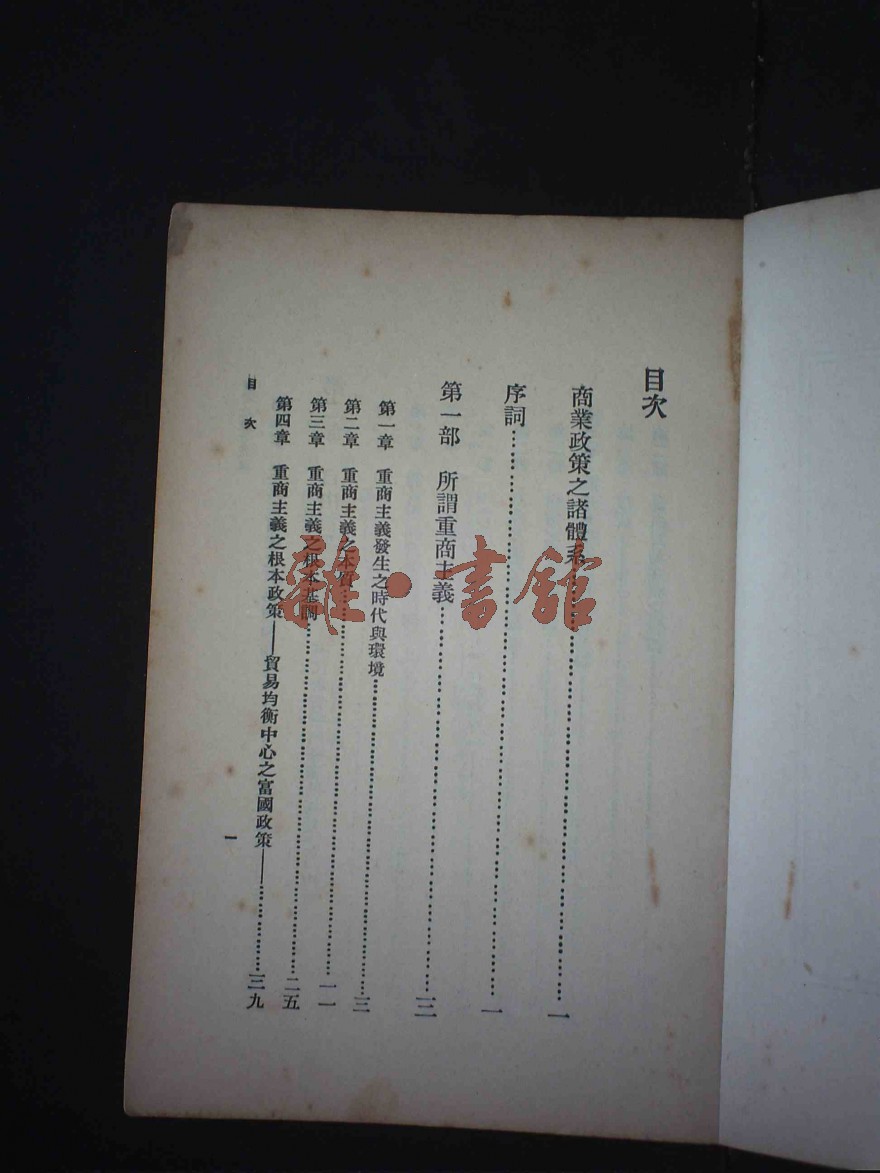 目次
商業政策之諸體系……一
序詞……一
第一部 所謂重商主義……三
第一章 重商主義發生之時代與環境……三
第二章 重商主義之本質……一一
第三章 重商主義之根本基調……二五
第四章 重商主義之根本政策——貿易均衡中心之富國政策——……三九
目次
一
雜·書館